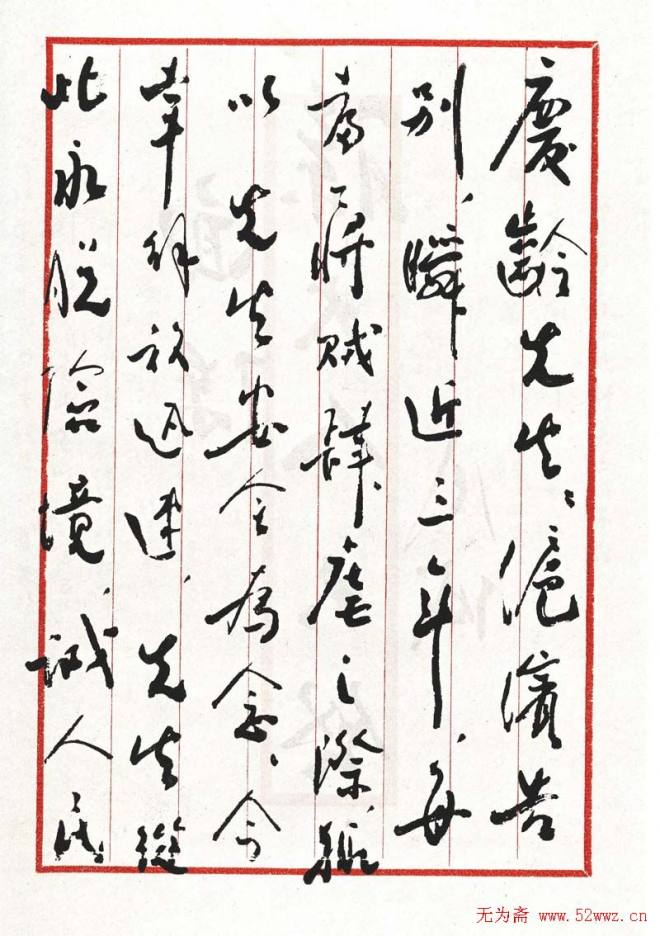 慶齡先生:滬濱告
别,瞬近三年,每
當蔣賊肆虐之際,輒
以先生安全為念。今
幸解放迅速,先生從
此永脱險境,誠人民
无为斋 www.52wwz.cn